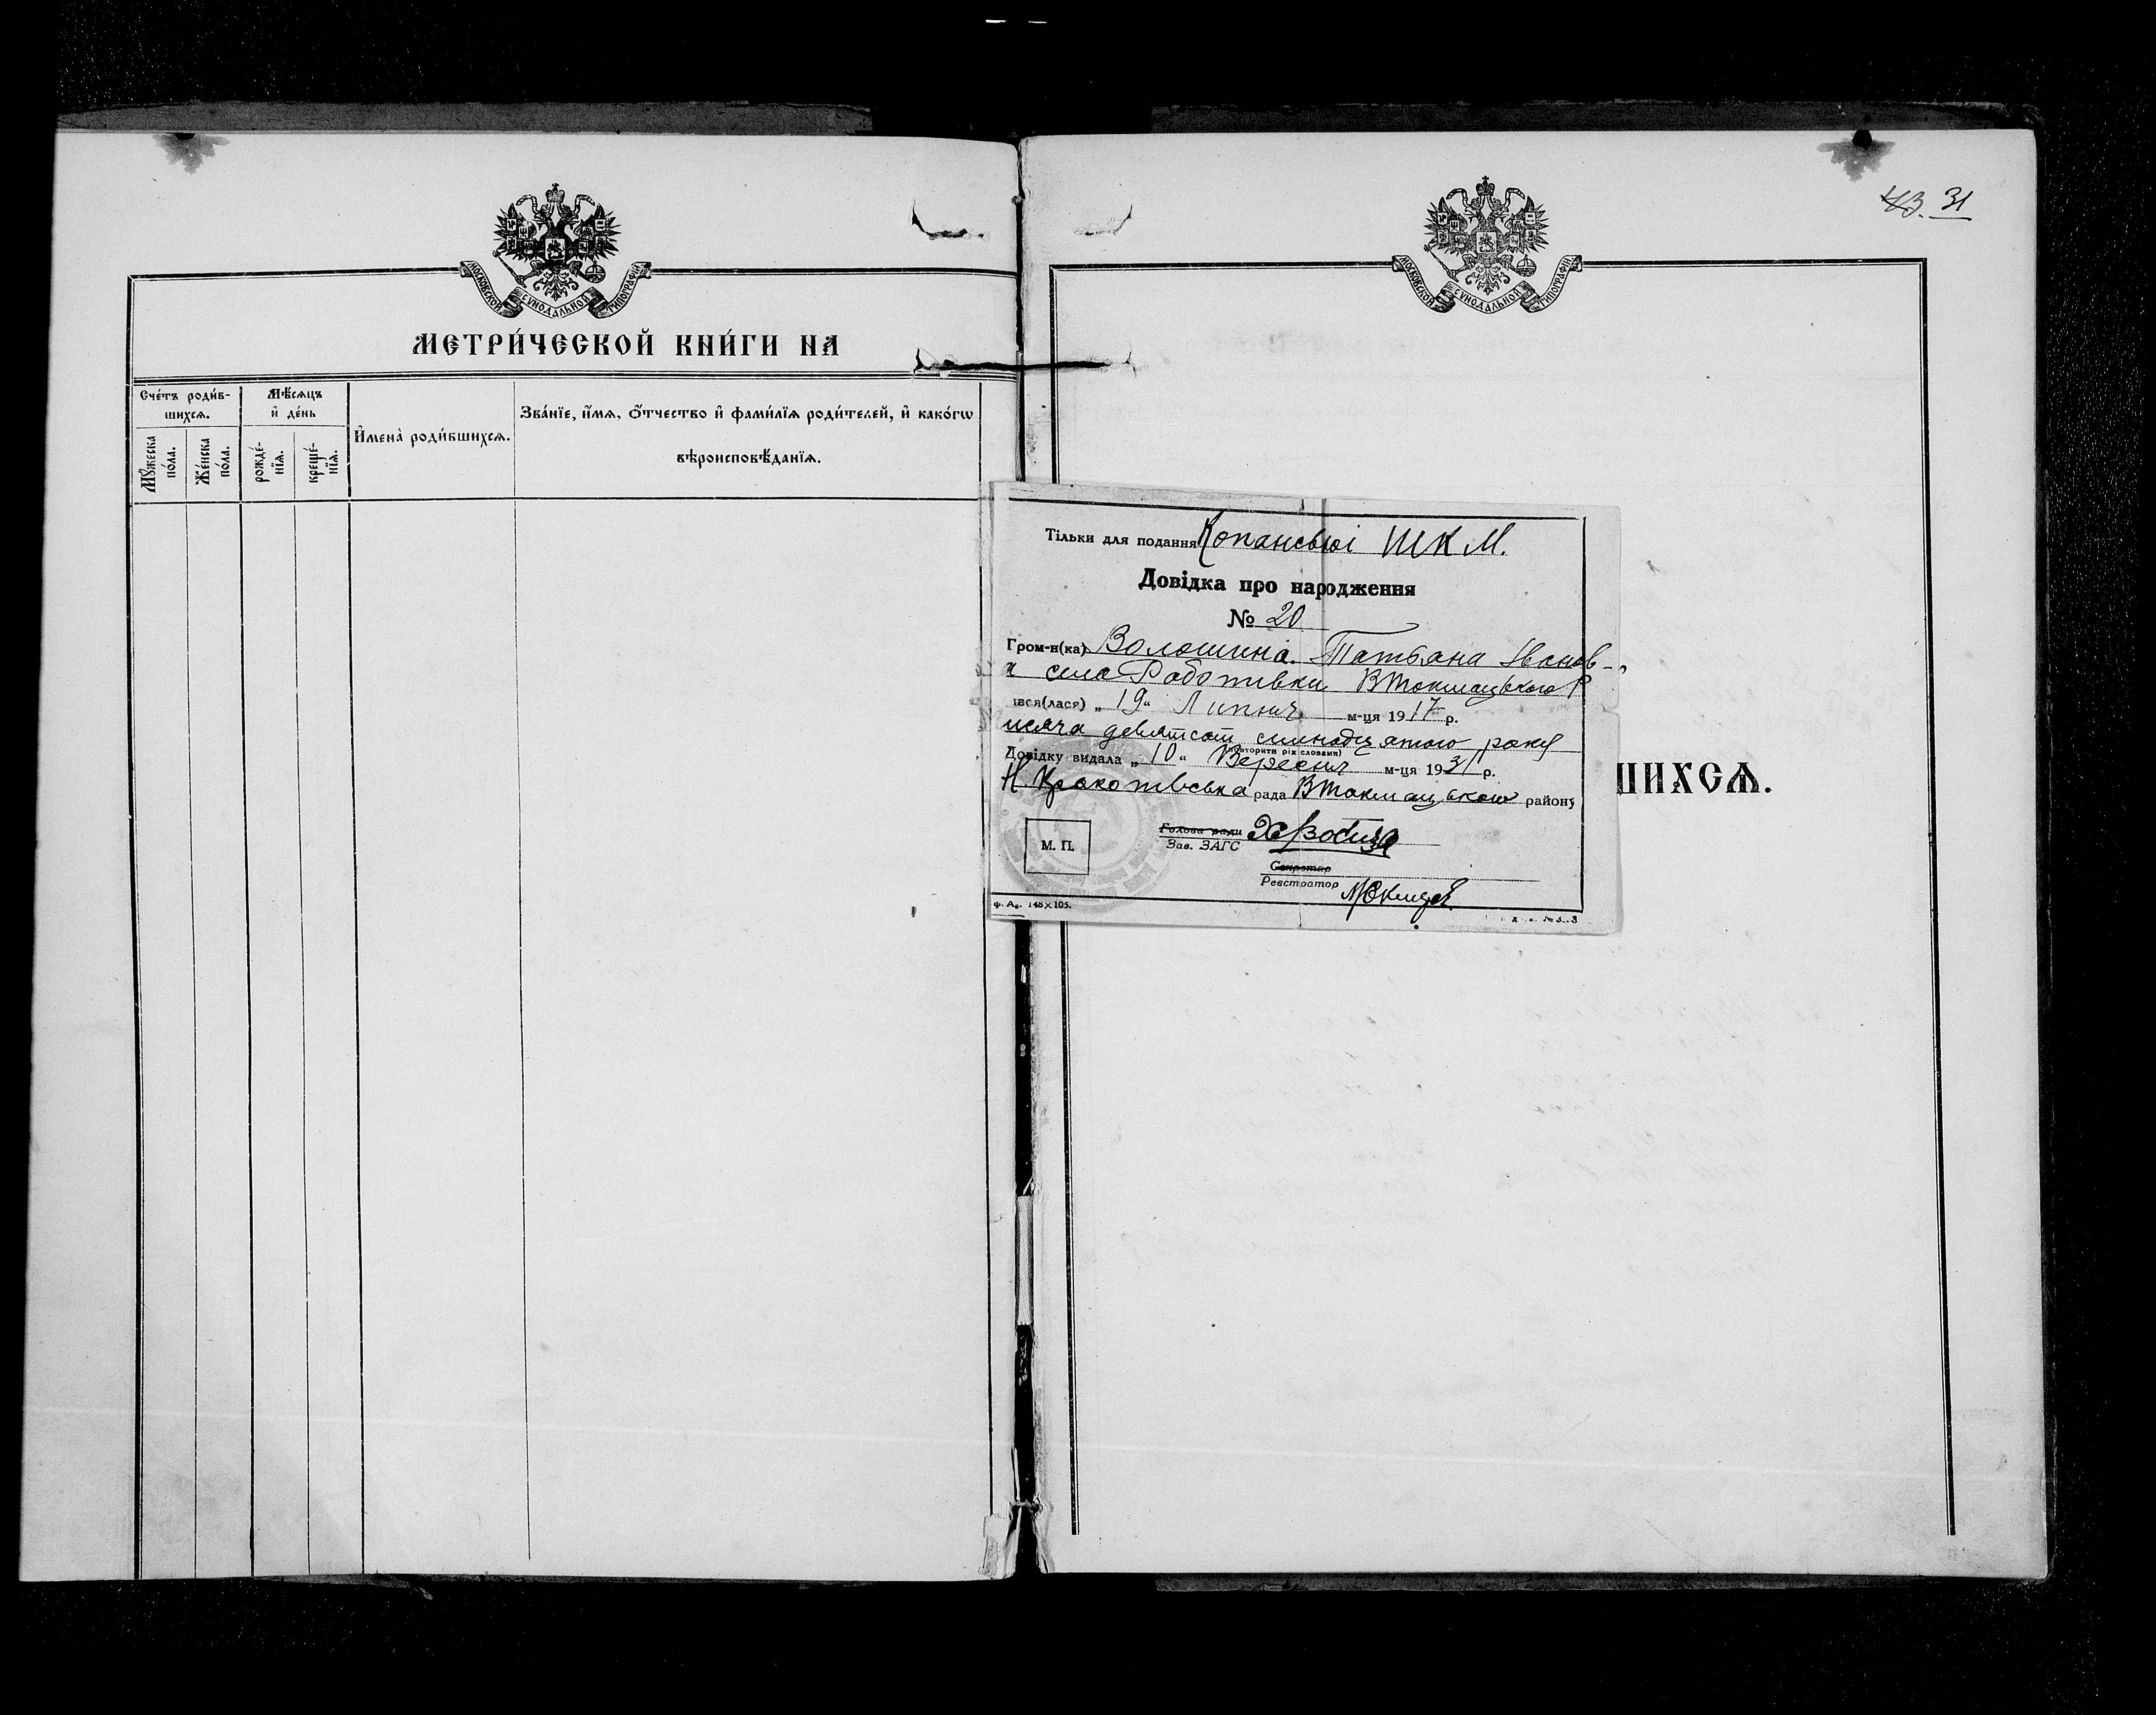 МОСКОВСКОЙ СѴНОДАЛЬНОЙ ТИПОГРАФІИ
МЕТРИ́ЧЕСКОЙ КНИ́ГИ НА
Счётъ роди́в-
шихсѧ.
Мѣ́сѧцъ
и҆ де́нь
И҆мена̀ роди́вшихсѧ.
Зва́нїе, и҆́мѧ, ѻ҆́тчество и҆ фами́лїѧ роди́телей, и҆ како́гѡ
вѣроисповѣ́данїѧ.
Мꙋ́жеска
по́ла.
Же́нска
по́ла.
рожде́-
нїѧ.
креще́-
нїѧ.
43. 31
МОСКОВСКОЙ СѴНОДАЛЬНОЙ ТИПОГРАФІИ
Тільки для подання Копанської ШКМ.
Довідка про народження
№ 20
Гром-н(ка) Волошина Татьяна Іванів-
села В Токмацького Р
івся(лася) „ 19 “ Липня м-ця 1917 р.
исяча девятсот симнадцятого року
(повторити рік словами)
Довідку видала „ 10 “ Вересня м-ця 1931 р.
рада В Токмацького району
М. П.
Голова ради
Зав. ЗАГС
Секретар
Реєстратор
ф. А₆. 148×105.
ШИХСѦ.